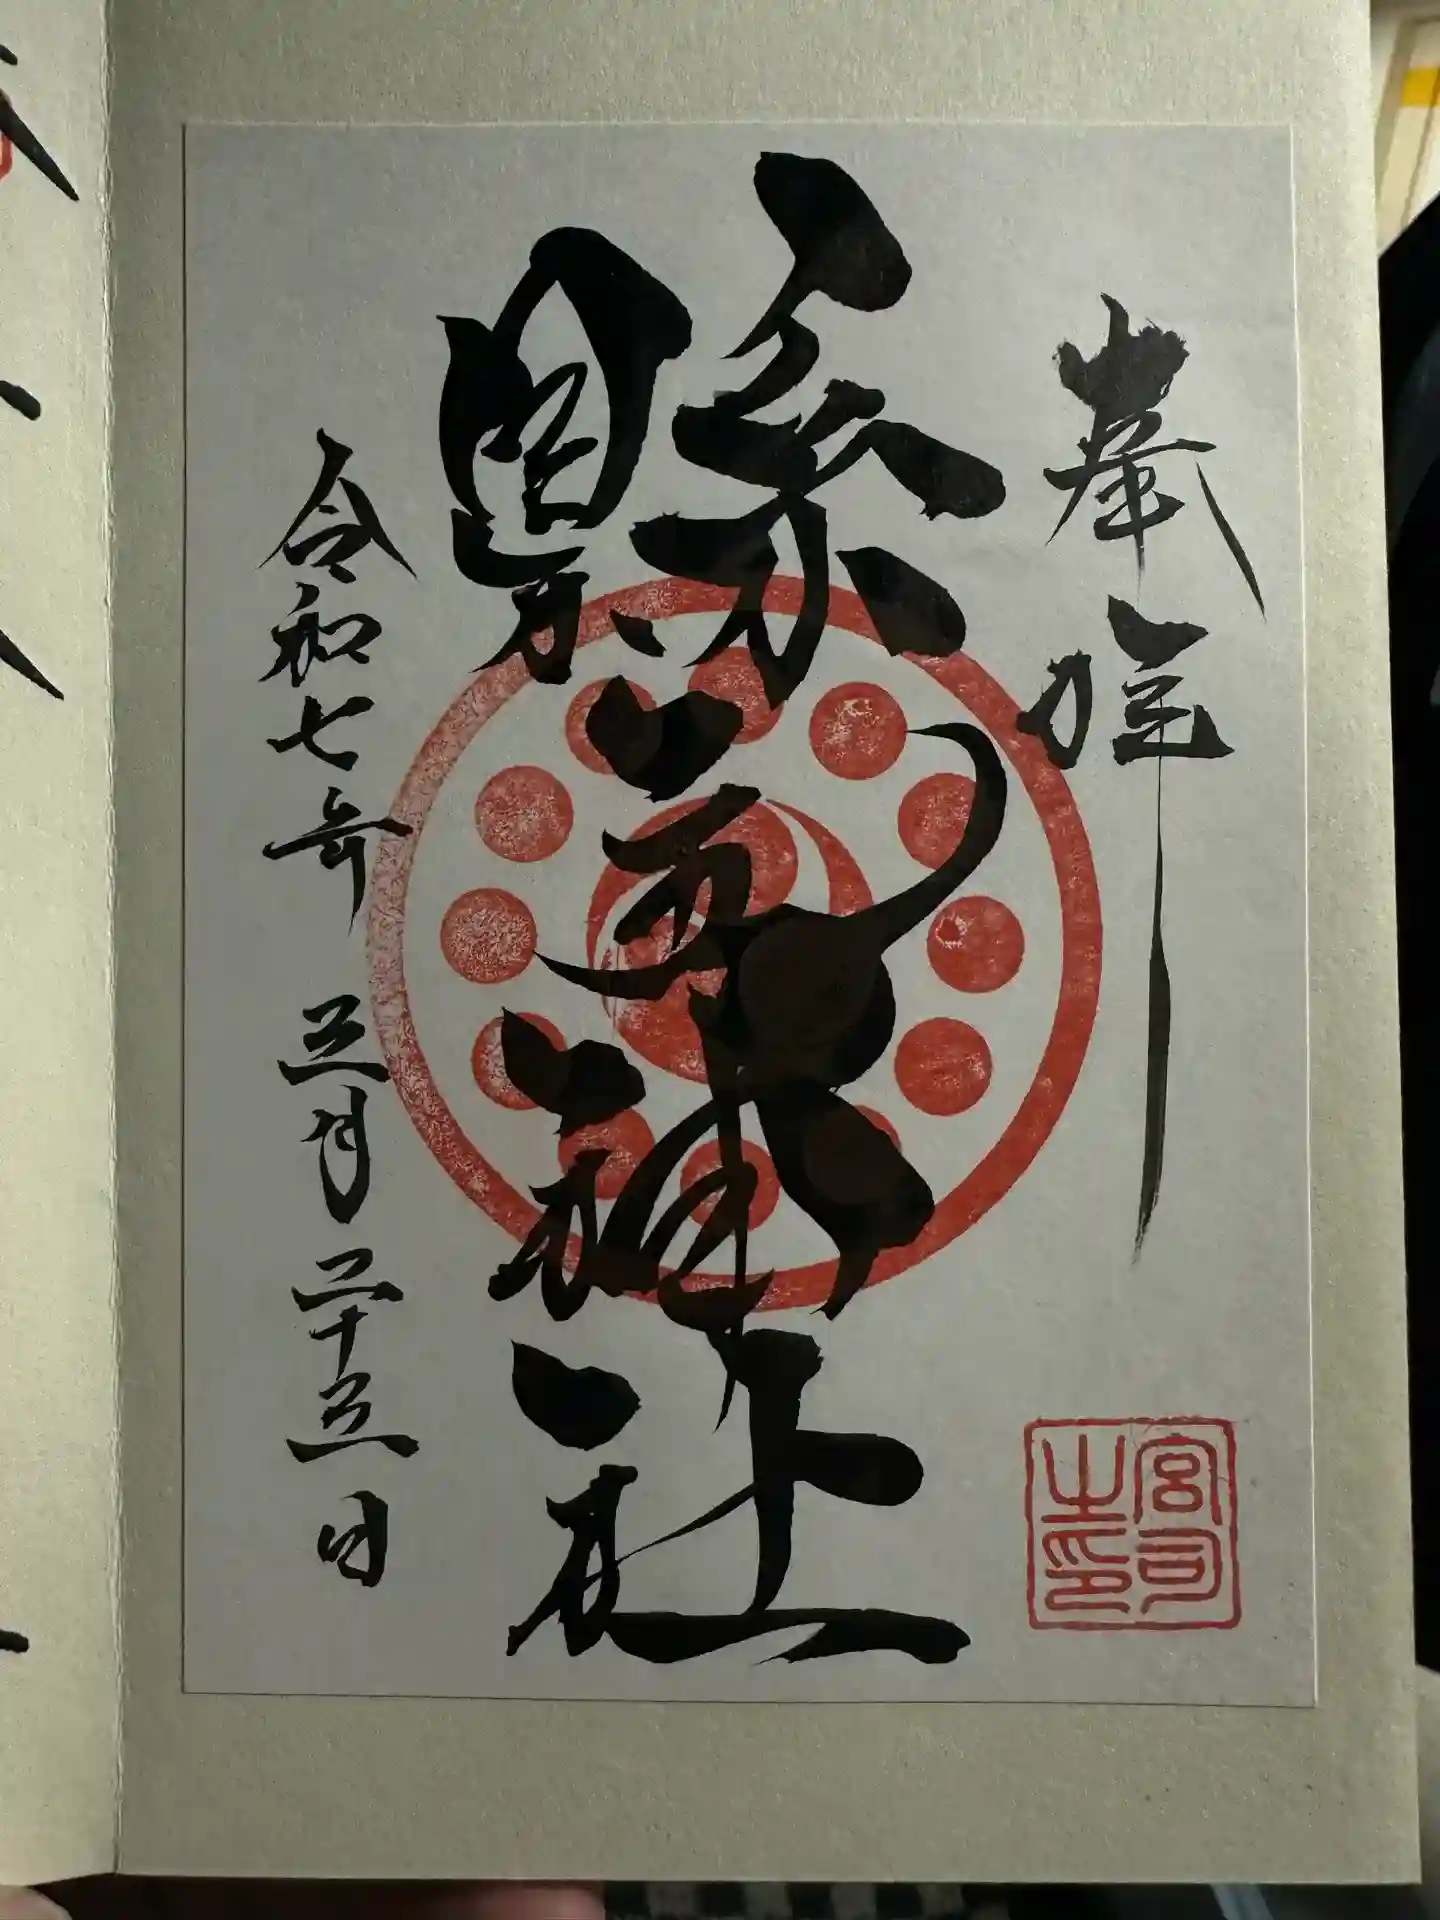 奉拝
縣 神社
令和七年 三月二十三日
宮司
之印